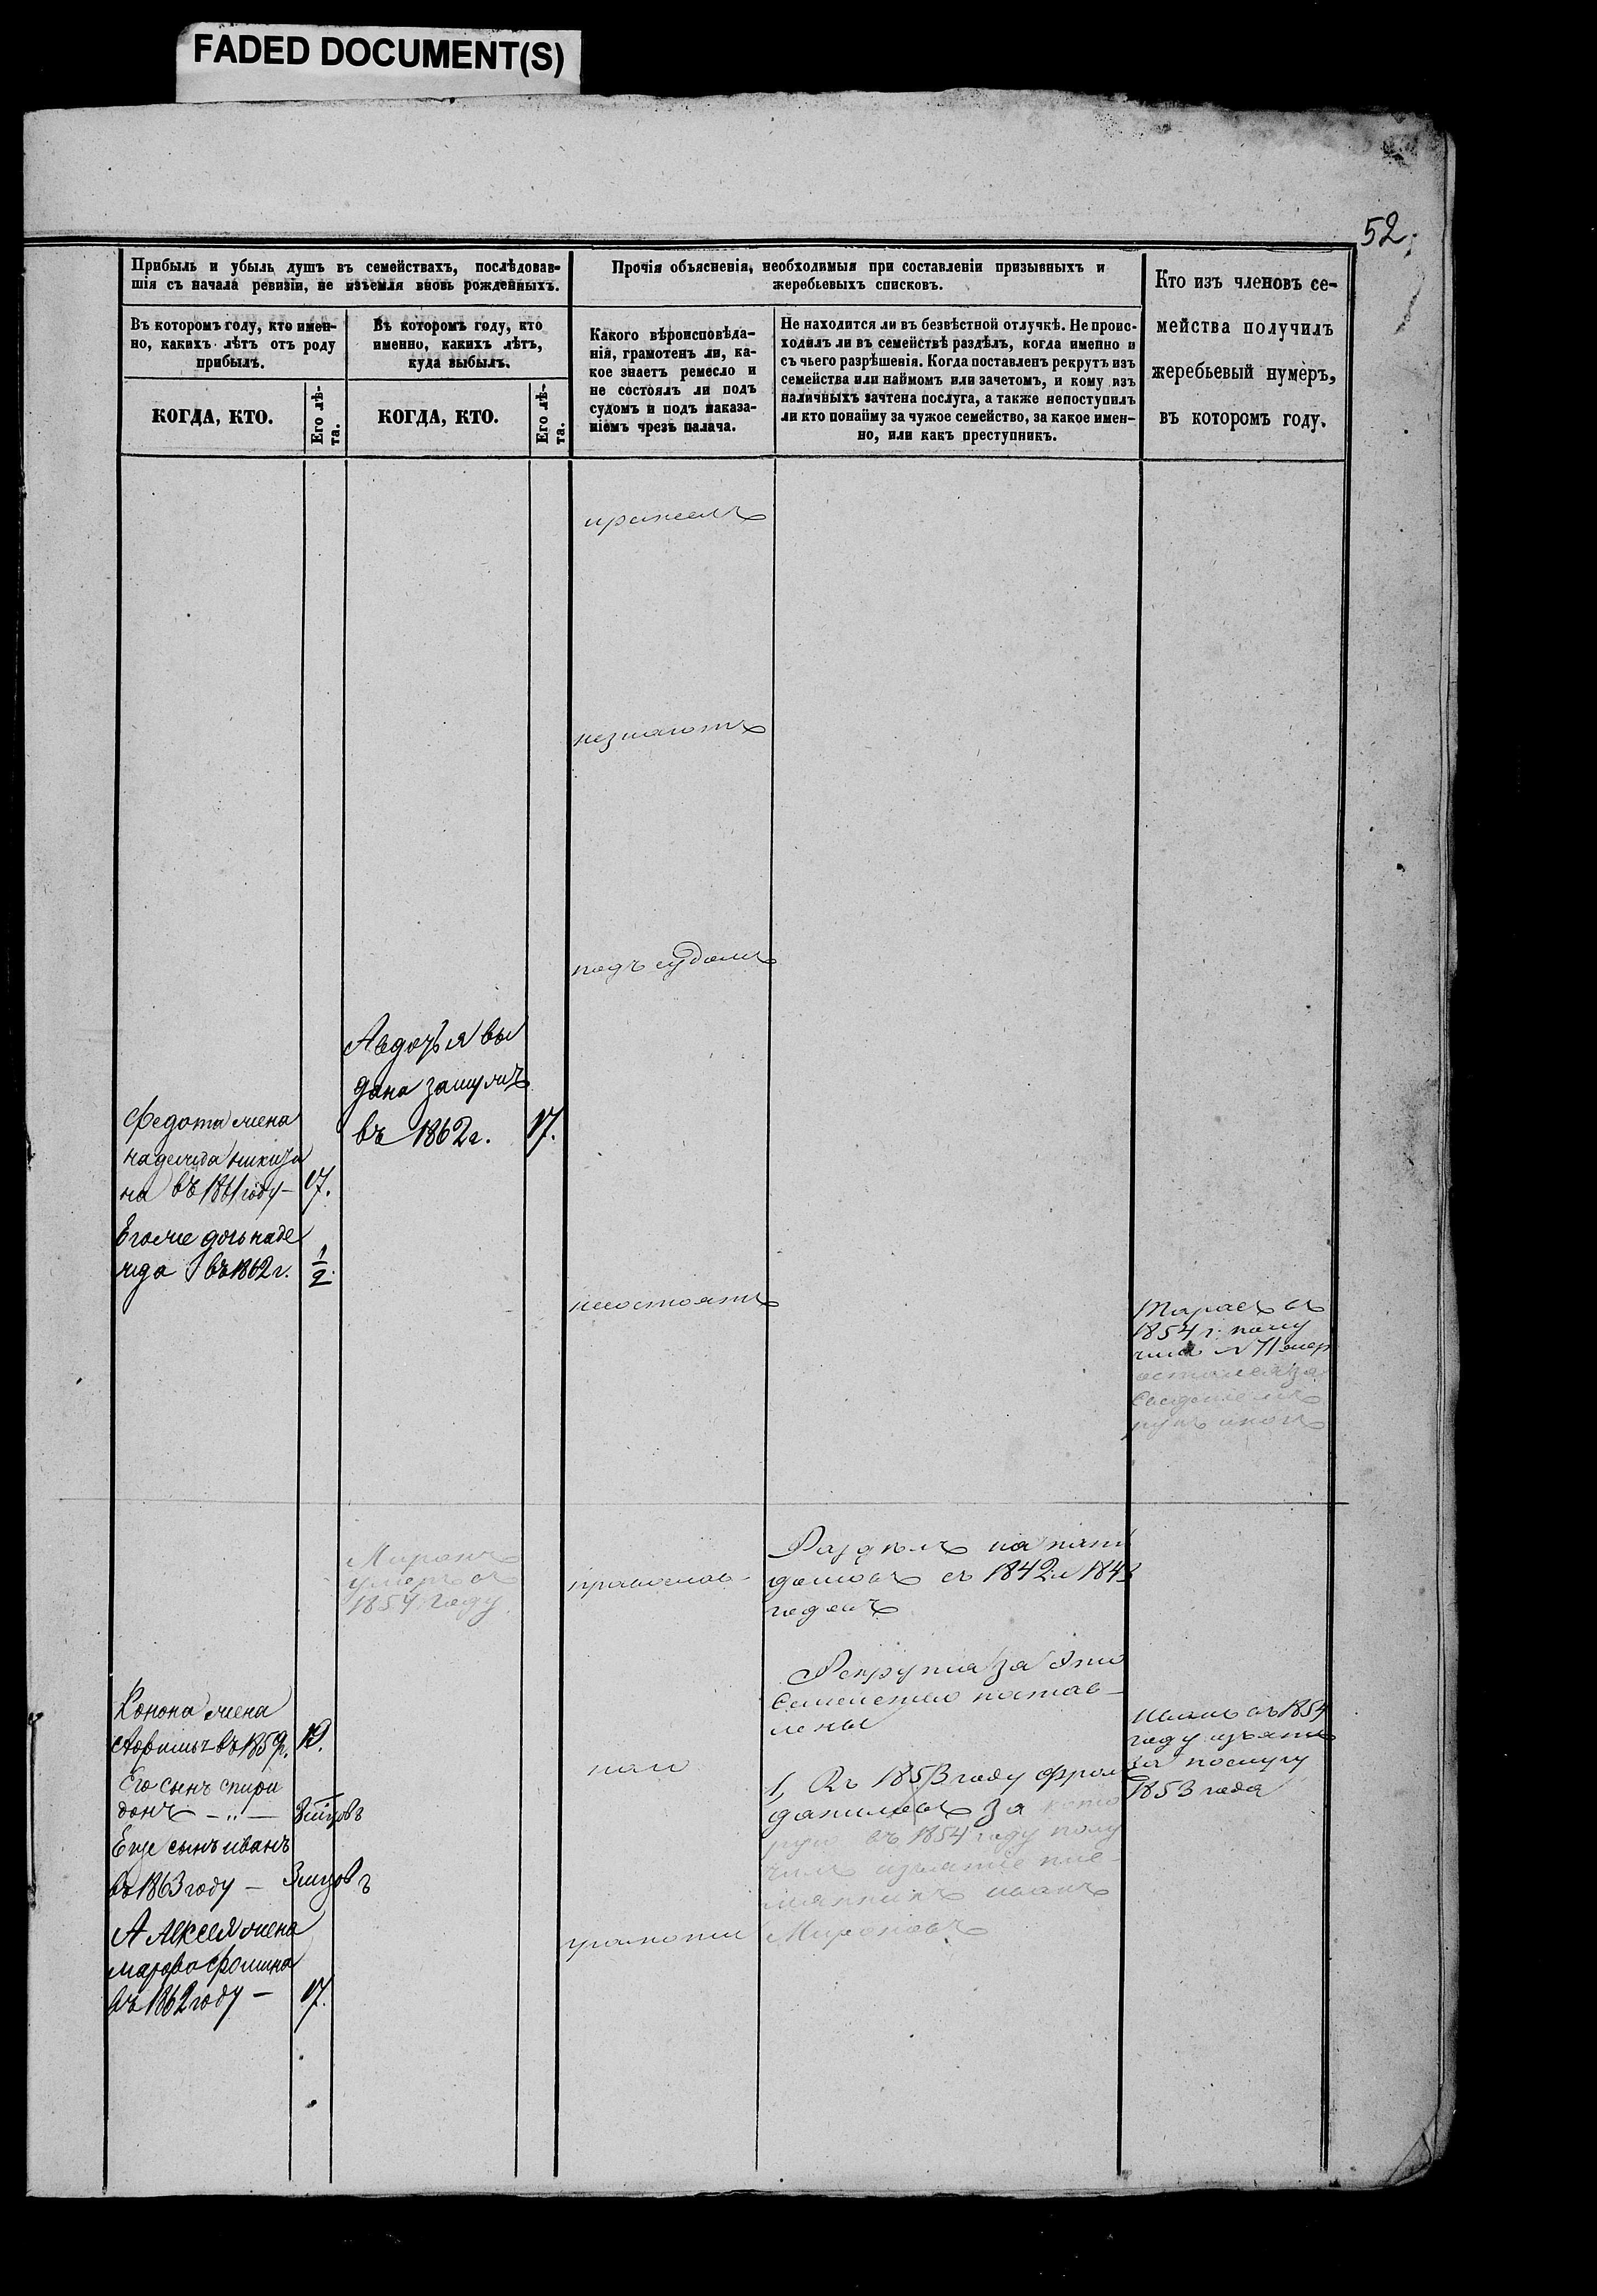 FADED DOCUMENT(S)
52.
Прибыль и убыль душъ въ семействахъ, послѣдовав-
шія съ начала ревизіи, не изъемля вновь рожденныхъ.
Въ которомъ году, кто имен-
но, какихъ лѣтъ отъ роду
прибылъ.
КОГДА, КТО.
Его лѣ-
та.
Въ которомъ году, кто
именно, какихъ лѣтъ,
куда выбылъ.
КОГДА, КТО.
Его лѣ-
та.
Прочія объясненія, необходимыя при составленіи призывныхъ и
жеребьевыхъ списковъ.
Какого вѣроисповѣда-
нія, грамотенъ ли, ка-
кое знаетъ ремесло и
не состоялъ ли подъ
судомъ и подъ наказа-
ніемъ чрезъ палача.
Не находится ли въ безвѣстной отлучкѣ. Не проис-
ходилъ ли въ семействѣ раздѣлъ, когда именно и
съ чьего разрѣшенія. Когда поставленъ рекрутъ изъ
семейства или наймомъ или зачетомъ, и кому изъ
наличныхъ зачтена послуга, а также непоступилъ
ли кто понайму за чужое семейство, за какое имен-
но, или какъ преступникъ.
Кто изъ членовъ се-
мейства получилъ
жеребьевый нумеръ,
въ которомъ году.
незнаютъ
подъ судомъ
несостоятъ
Авдотья вы
дана замужъ
въ 1862 г. 17.
Федота жена
надежда никити
на въ 1861 году – 17.
Егоже дочь наде
жда въ 1862 г. 1/2.
Тарасъ въ
1854 г. полу
чилъ № 71
Миронъ
умеръ въ
1854 году.
православ-
Раздѣлъ на пять
домовъ съ 1842 и 1843
годовъ
Рекрута за это
семейство постав-
лены
1, Въ 1853 году Фролъ
даниловъ за кото
рую въ 1854 году полу
чилъ изъятіе пле-
мянникъ иванъ
Мироновъ
Иванъ въ 1854
году изъятъ
за послугу
1853 года
Конона жена
въ 1859 г. 19.
Его сынъ спири
донъ – „ –
Еще сынъ иванъ
въ 1863 году –
Алексея жена
марфа фомина
въ 1862 году – 17.